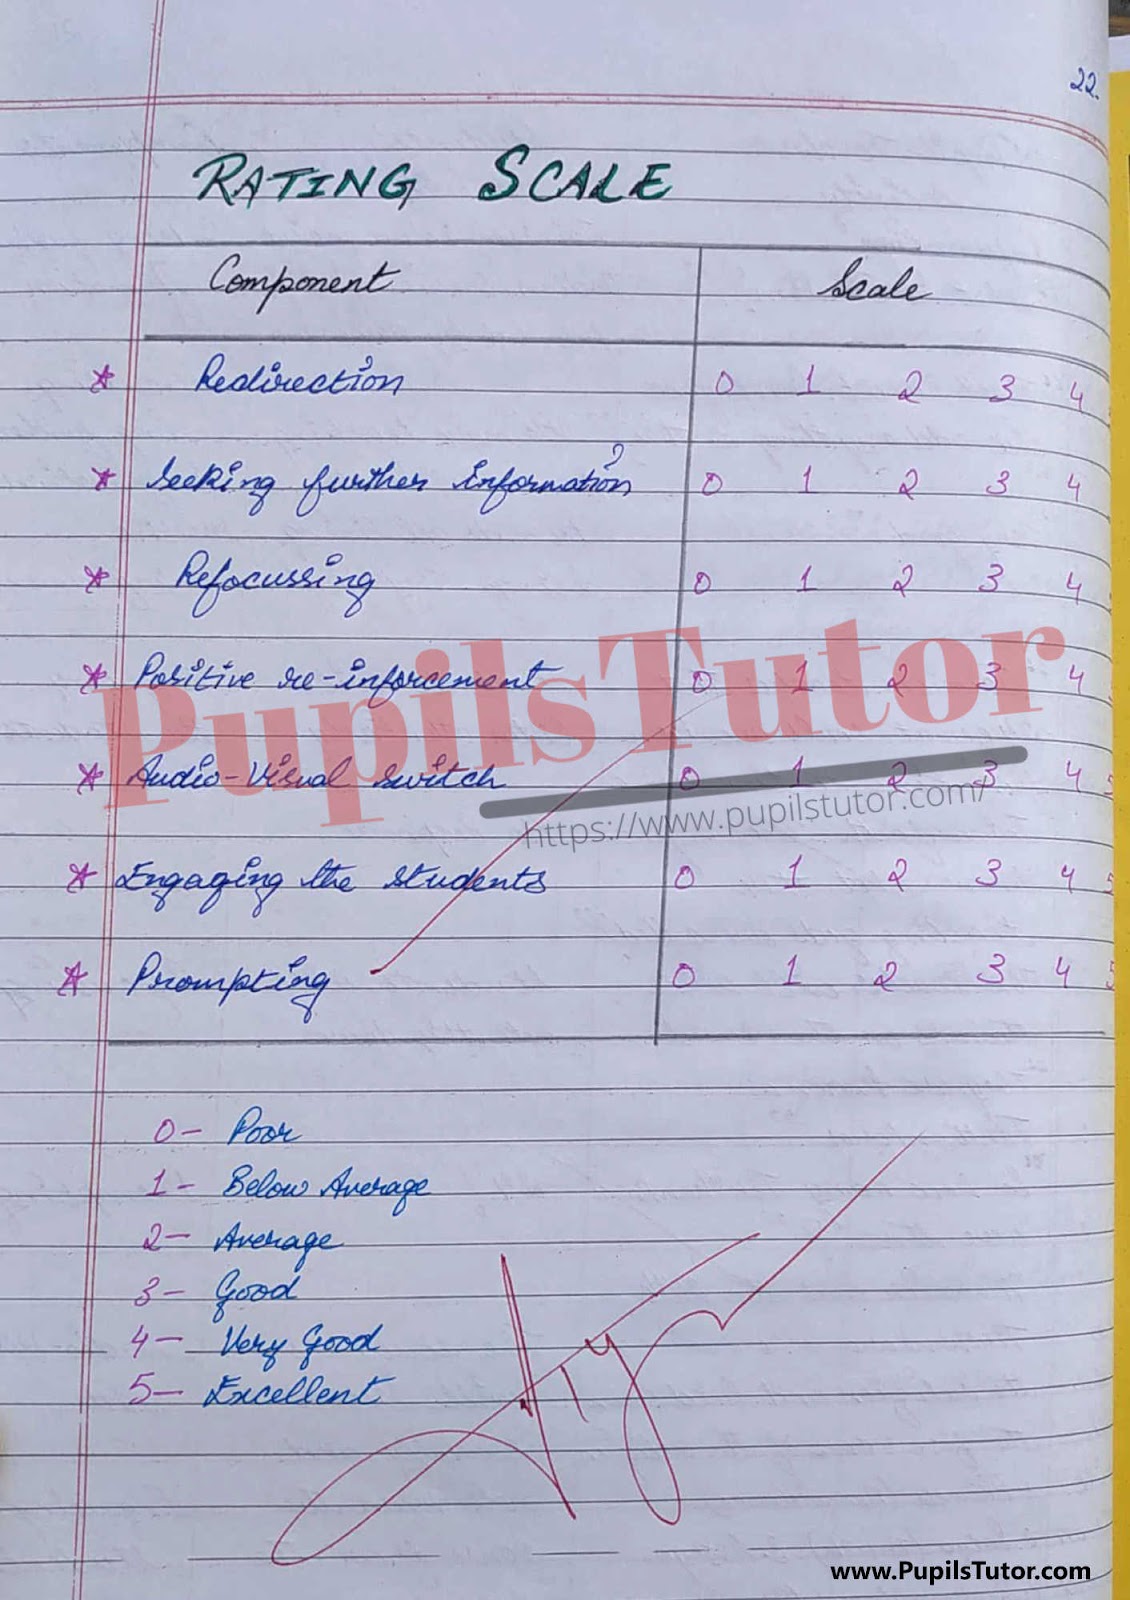 22.
RATING SCALE
Component Scale
* Redirection 0 1 2 3 4
* Seeking further information 0 1 2 3 4
* Refocussing 0 1 2 3 4
* Positive re-inforcement 0 1 2 3 4
* Audio-Visual switch 0 1 2 3 4 5
* Engaging the students 0 1 2 3 4 5
* Prompting 0 1 2 3 4 5
PupilsTutor
https://www.pupilstutor.com/
0- Poor
1- Below Average
2- Average
3- Good
4- Very Good
5- Excellent
www.PupilsTutor.com